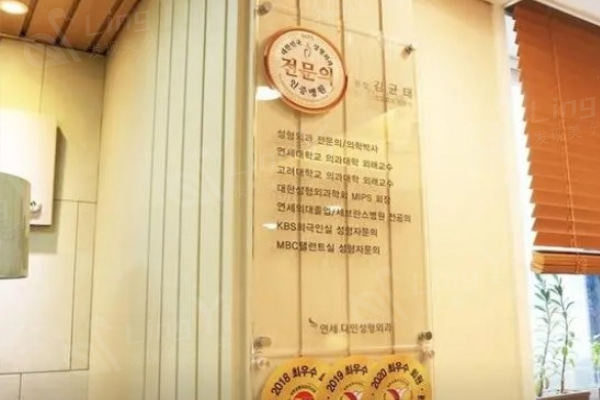 대한민국 성형외과
전문의
인증병원
원장 김균태
성형외과 전문의/의학박사
연세대학교 의과대학 외래교수
고려대학교 의과대학 외래교수
대한성형외과학회 MIPS 회장
연세의대졸업/세브란스병원 전공의
KBS외국인실 성형자문의
MBC탤런트실 성형자문의
연세 다인성형외과
2018 최우수
2019 최우수
2020 최우수
Ling
Ling